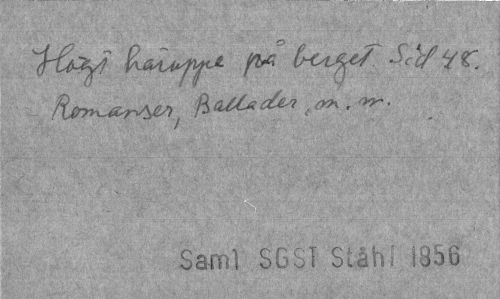 Högt häruppe på berget. Sid 48.
Romanser, Ballader, m. m.
Saml SGST Ståhl 1856